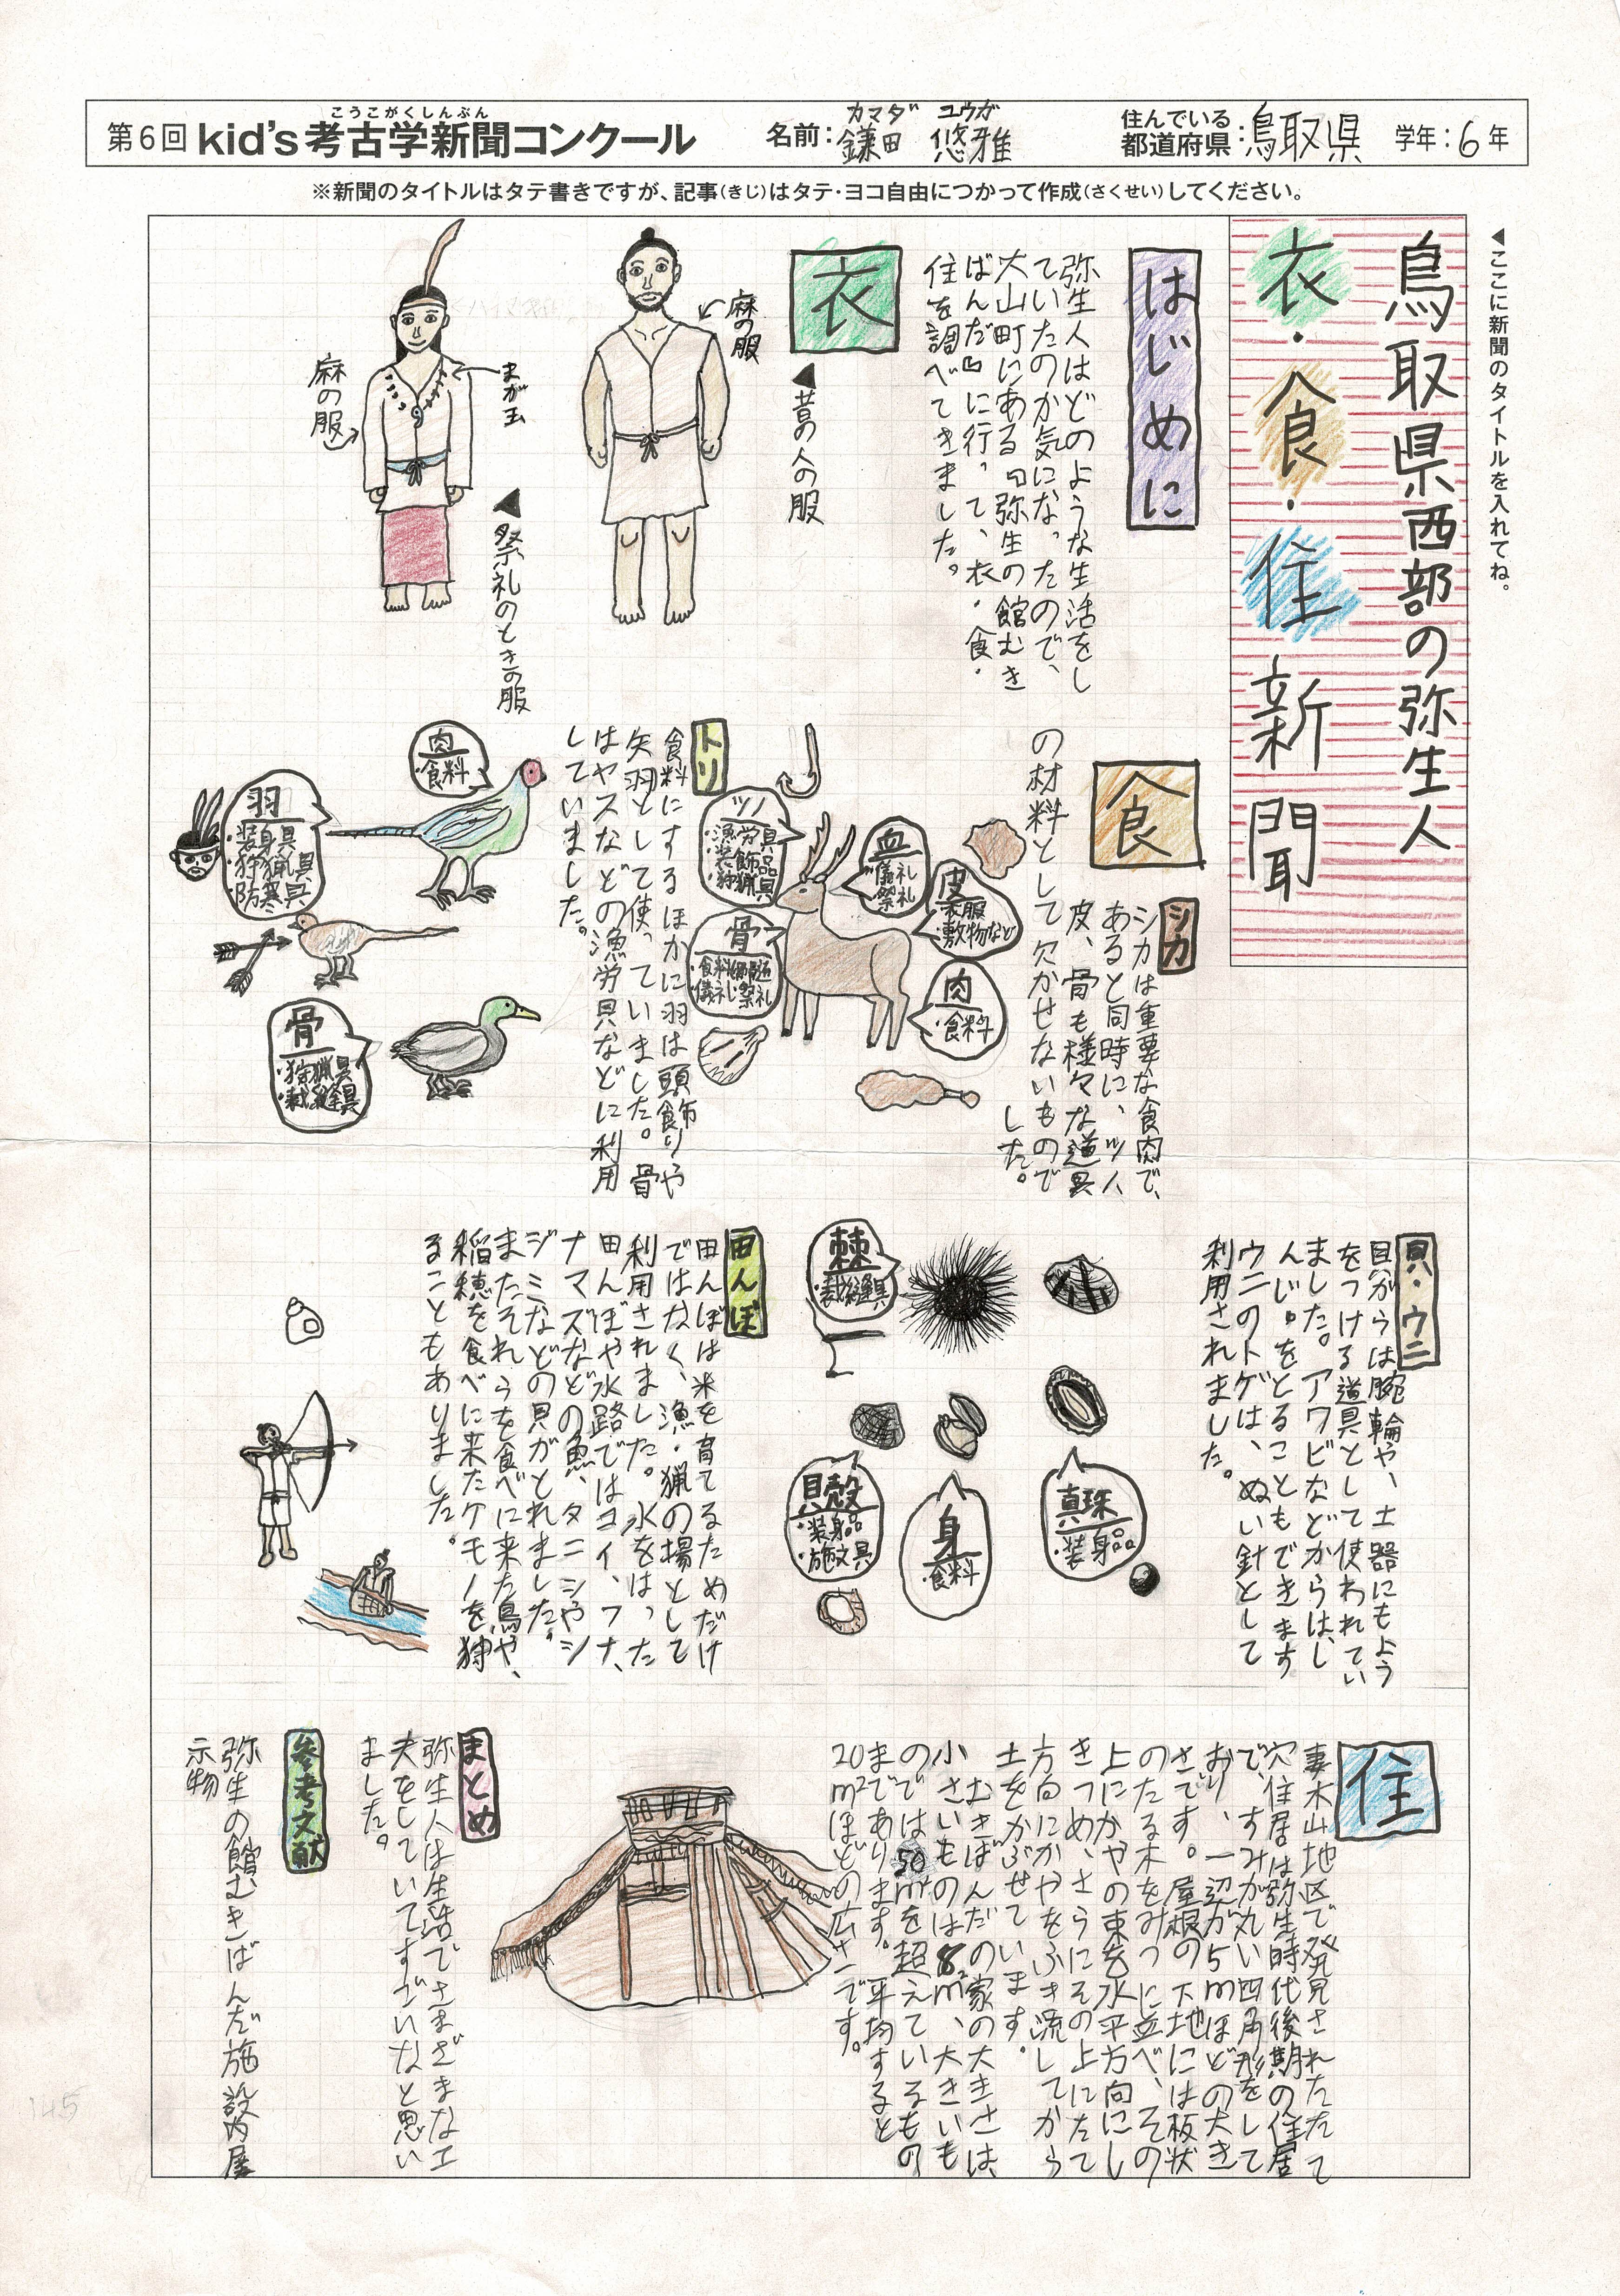 第6回 kid's 考古学新聞コンクール
こうこがくしんぶん
名前：鎌田 悠雅
カマダ ユウガ
住んでいる都道府県：鳥取県
学年：6年
※新聞のタイトルはタテ書きですが、記事（きじ）はタテ・ヨコ自由につかって作成（さくせい）してください。
◀ここに新聞のタイトルを入れてね。
鳥取県西部の弥生人
衣・食・住新聞
はじめに
弥生人はどのような生活をし
ていたのか気になったので、
大山町にある『弥生の館むき
ばんだ』に行って、衣・食・
住を調べてきました。
衣
◀昔の人の服
麻の服
◀祭礼のときの服
まが玉
麻の服
食
シカ
シカは重要な食肉で、
あると同時に、ツノ
皮、骨も様々な道具
の材料として欠かせないもので
した。
血
儀礼
祭礼
皮
衣服
敷物など
肉
・食料
ツノ
・漁労具
・装飾品
・狩猟具
骨
・食料
・儀礼・祭礼
トリ
食料にするほかに羽は頭飾りや
矢羽として使っていました。骨
はヤスなどの漁労具などに利用
していました。
肉
・食料
羽
・装身具
・狩猟具
・防寒具
骨
・狩猟具
・裁縫具
貝・ウニ
貝がらは腕輪や、土器にもよう
をつける道具として使われてい
ました。アワビなどからは、し
んじゅをとることもできます
ウニのトゲは、ぬい針として
利用されました。
棘
・裁縫具
真珠
・装身品
身
・食料
貝殻
・装身品
・施文具
田んぼ
田んぼは米を育てるためだけ
ではなく、漁・猟の場として
利用されました。水をはった
田んぼや水路ではコイ、フナ、
ナマズなどの魚、タニシやシ
ジミなどの貝がとれました。
またそれらを食べに来た鳥や、
稲穂を食べに来たケモノを狩
ることもありました。
住
妻木山地区で発見されたたて
穴住居は弥生時代後期の住居
で、すみが丸い四角形をして
おり、一辺が5mほどの大き
さです。屋根の下地には板状
のたる木をみつに並べ、その
上にかやの束を水平方向にし
きつめ、さらにその上にたて
方向にかやをふき流してから
土をかぶせています。
むきばんだの家の大きさは、
小さいものは8m²、大きいも
のでは50m²を超えているもの
まであります。平均すると
20m²ほどの広さです。
まとめ
弥生人は生活でさまざまな工
夫をしていてすごいなと思い
ました。
参考文献
弥生の館むきばんだ施設内展
示物
145